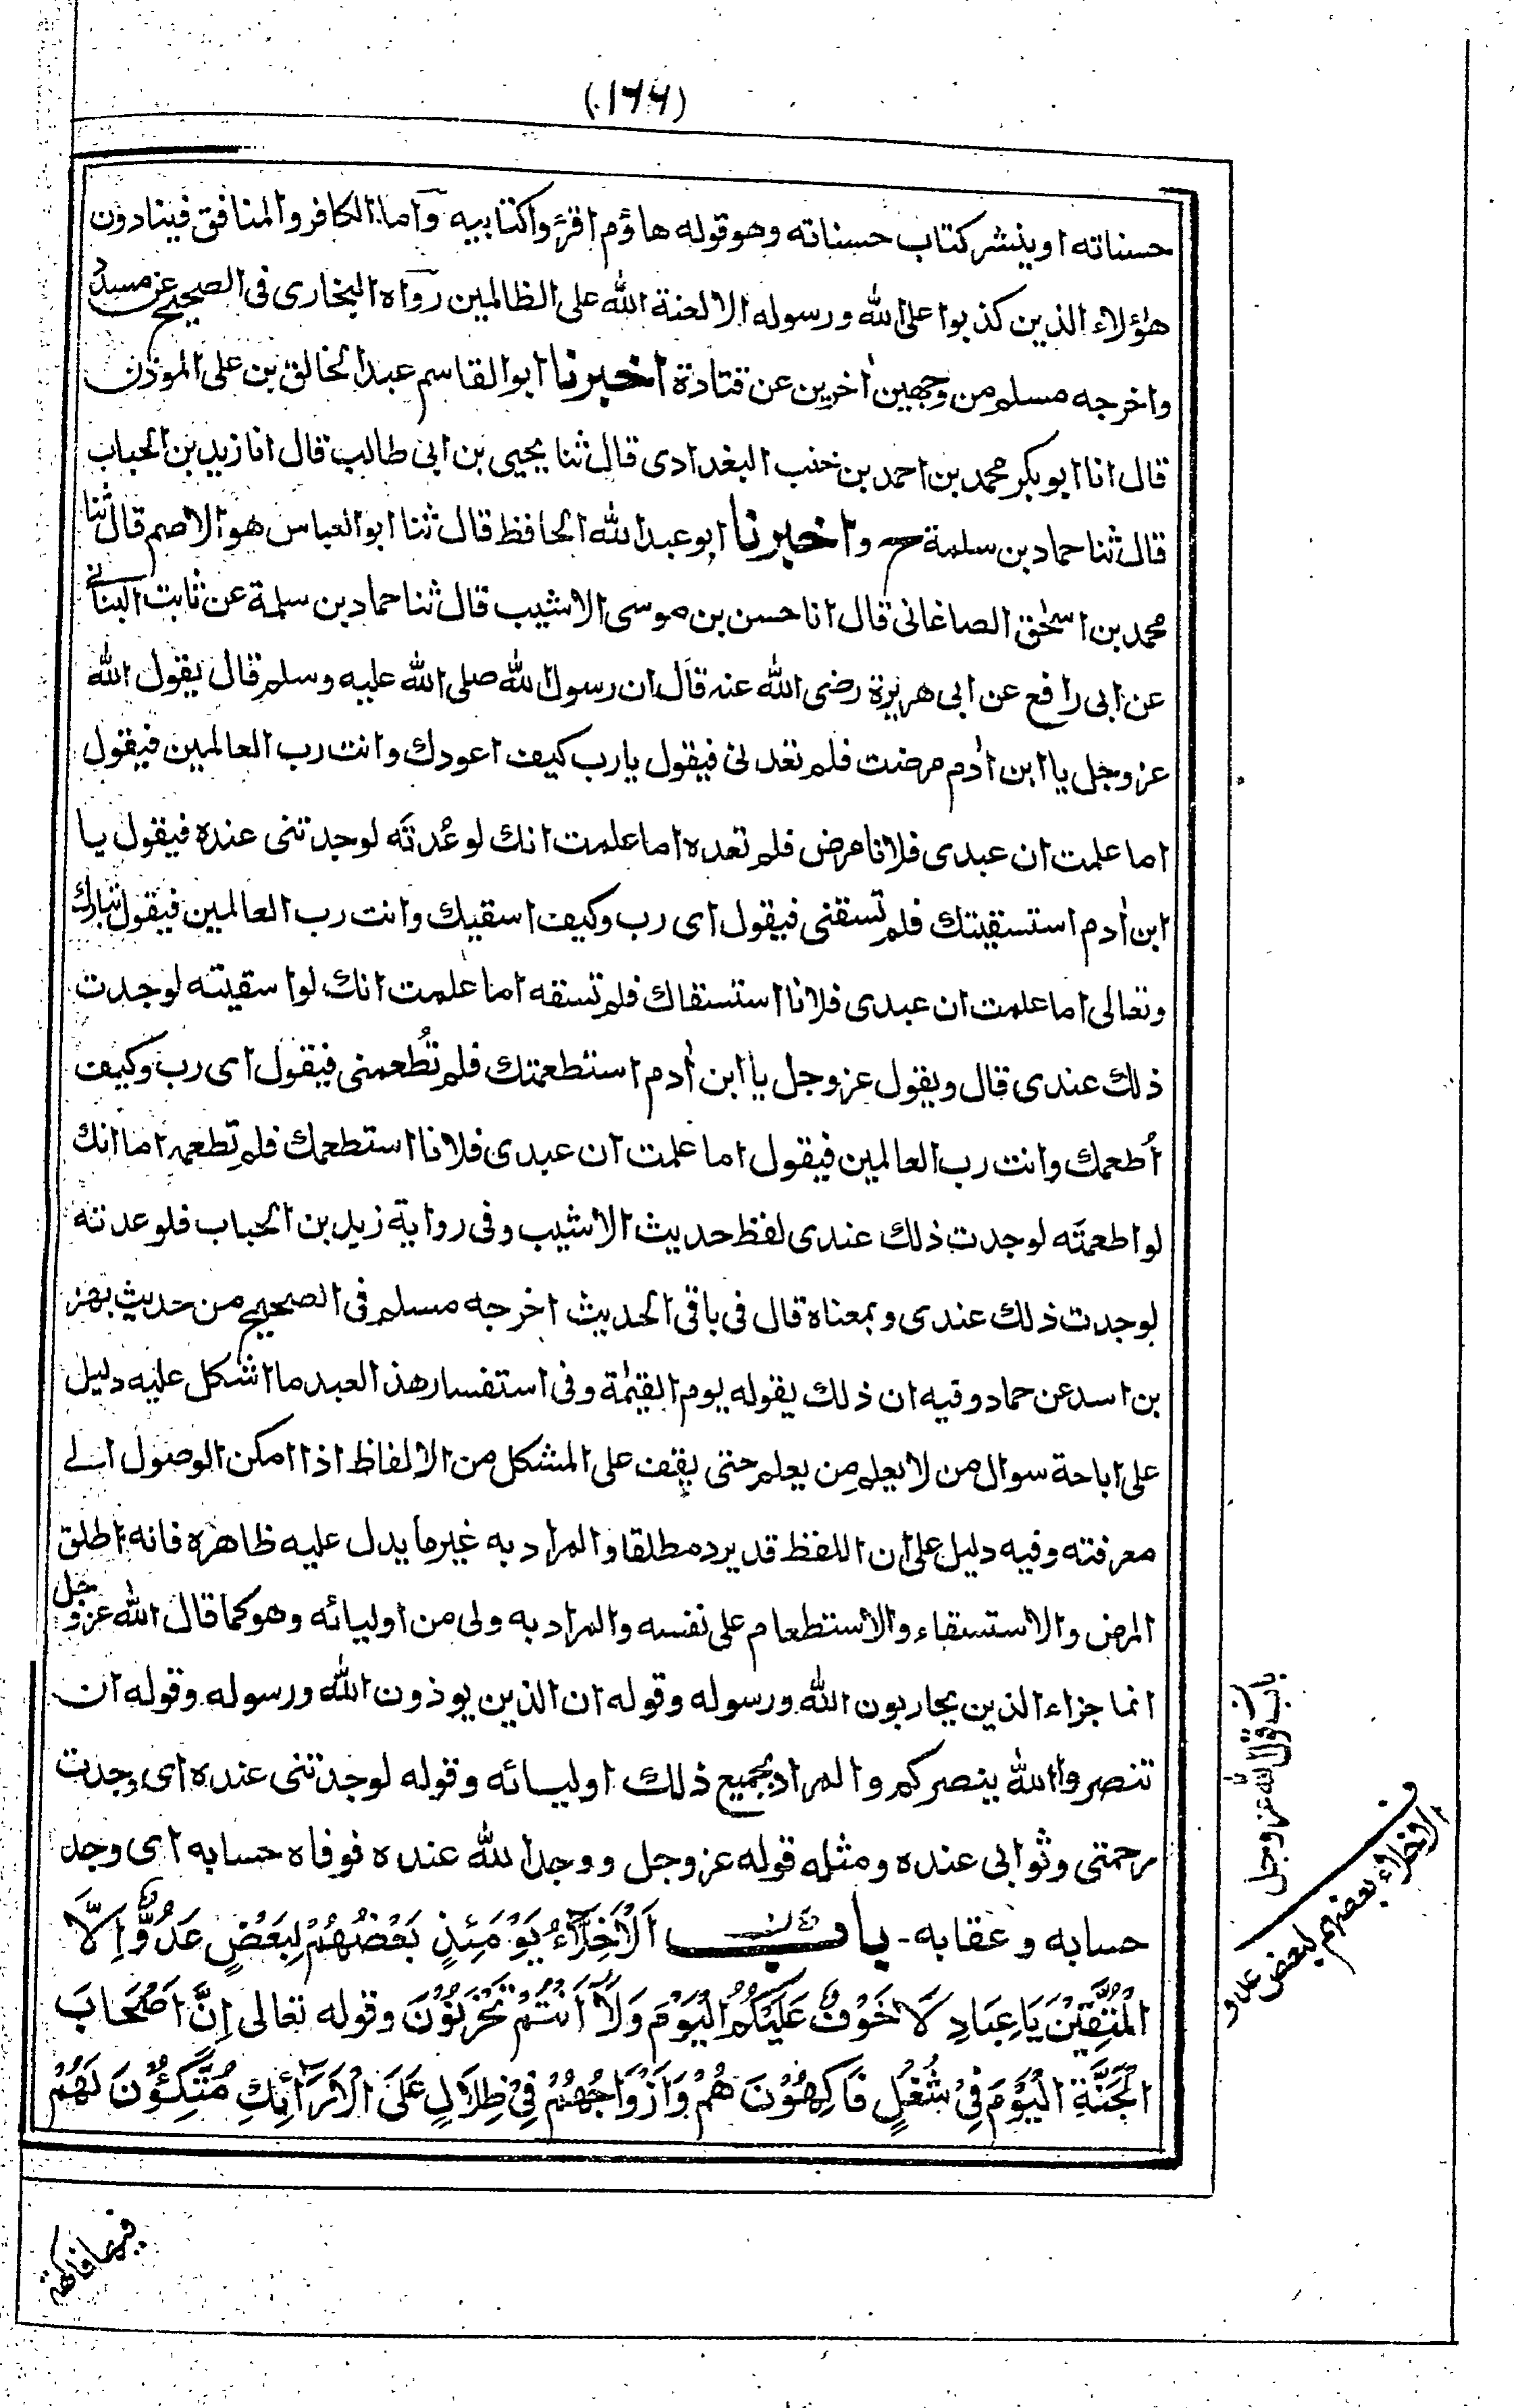 (١٦٦)
حسناته او ينشر كتاب حسناته وهو قوله هاؤم اقرؤا كتابيه واما الكافر والمنافق فينادون
هؤلاء الذين كذبوا على الله ورسوله الا لعنة الله على الظالمين رواه البخارى فى الصحيح عن مسدد
واخرجه مسلم من وجهين اٰخرين عن قتادة اخبرنا ابو القاسم عبد الخالق بن على الموذن
قال انا ابو بكر محمد بن احمد بن خنب البغدادى قال ثنا يحيى بن ابى طالب قال انا زيد بن الحباب
قال ثنا حماد بن سلمة ح واخبرنا ابو عبد الله الحافظ قال ثنا ابو العباس هو الاصم قال ثنا
محمد بن اسحٰق الصاغانى قال انا حسن بن موسى الاشيب قال ثنا حماد بن سلمة عن ثابت البنانى
عن ابى رافع عن ابى هريرة رضى الله عنه قال ان رسول الله صلى الله عليه وسلم قال يقول الله
عز وجل يا ابن اٰدم مرضت فلم تعدنى فيقول يا رب كيف اعودك وانت رب العالمين فيقول
اما علمت ان عبدى فلانا مرض فلم تعده اما علمت انك لو عُدتَه لوجدتنى عنده فيقول يا
ابن اٰدم استسقيتك فلم تسقنى فيقول اى رب وكيف اسقيك وانت رب العالمين فيقول تبارك
وتعالى اما علمت ان عبدى فلانا استسقاك فلم تسقه اما علمت انك لو اسقيته لوجدت
ذلك عندى قال ويقول عز وجل يا ابن اٰدم استطعمتك فلم تُطعمنى فيقول اى رب وكيف
اُطعمك وانت رب العالمين فيقول اما علمت ان عبدى فلانا استطعمك فلم تطعمه اما انك
لو اطعمتَه لوجدت ذلك عندى لفظ حديث الاشيب وفى رواية زيد بن الحباب فلو عدته
لوجدت ذلك عندى وبمعناه قال فى باقى الحديث اخرجه مسلم فى الصحيح من حديث بهز
بن اسد عن حماد وفيه ان ذلك يقوله يوم القيٰمة وفى استفسار هذ العبد ما اشكل عليه دليل
على اباحة سوال من لا يعلم مِن يعلم حتى يقف على المشكل من الالفاظ اذا امكن الوصول الى
معرفته وفيه دليل على ان اللفظ قد يرد مطلقا والمراد به غير ما يدل عليه ظاهره فانه اطلق
المرض والاستسقاء والاستطعام على نفسه والمراد به ولى من اوليائه وهو كما قال الله عز وجل
انما جزاء الذين يحاربون الله ورسوله وقوله ان الذين يوذون الله ورسوله وقوله ان
تنصروا الله ينصركم والمراد بجميع ذلك اوليائه وقوله لوجدتنى عنده اى وجدت
رحمتى وثوابى عنده ومثله قوله عز وجل ووجد الله عنده فوفاه حسابه اى وجد
حسابه وعقابه - باب اَلْاَخِلَّاءُ يَوْمَئِذٍ بَعْضُهُمْ لِبَعْضٍ عَدُوٌّ اِلَّا
الْمُتَّقِيْنَ يَا عِبَادِ لَا خَوْفٌ عَلَيْكُمُ الْيَوْمَ وَلَا اَنْتُمْ تَحْزَنُوْنَ وقوله تعالى اِنَّ اَصْحَابَ
الْجَنَّةِ الْيَوْمَ فِىْ شُغُلٍ فَاكِهُوْنَ هُمْ وَاَزْوَاجُهُمْ فِىْ ظِلَالٍ عَلَى الْاَرَائِكِ مُتَّكِئُوْنَ لَهُمْ
باب قول الله عز وجل
الاخلاء بعضهم لبعض عدو
فيها فاكهة